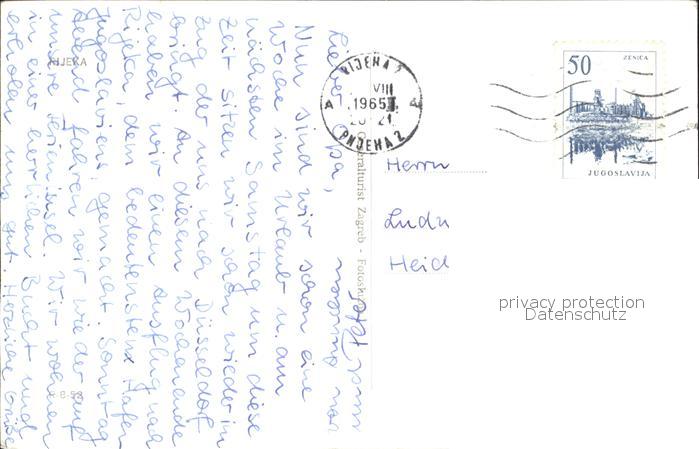 Lieber Opa,
Nun sind wir schon eine
Woche im Urlaub u. am
nächsten Samstag um diese
Zeit sitzen wir schon wieder im
Zug der uns nach Düsseldorf
bringt. An diesem Wochenende
haben wir einen Ausflug nach
Rijeka, dem bedeutensten Hafen
Jugoslaviens gemacht. Sonntag
Abend fahren wir wieder auf
unsere Ferieninsel. Wir wohnen
in einer herrlichen Bucht und
erholen uns gut. Herzliche Grüße
RIJEKA
RIJEKA 2
VIII
1965
20-21
РИЈЕКА 2
Generalturist Zagreb -
50
ZENICA
JUGOSLAVIJA
Herrn
Ludu
Heid
privacy protection
Datenschutz